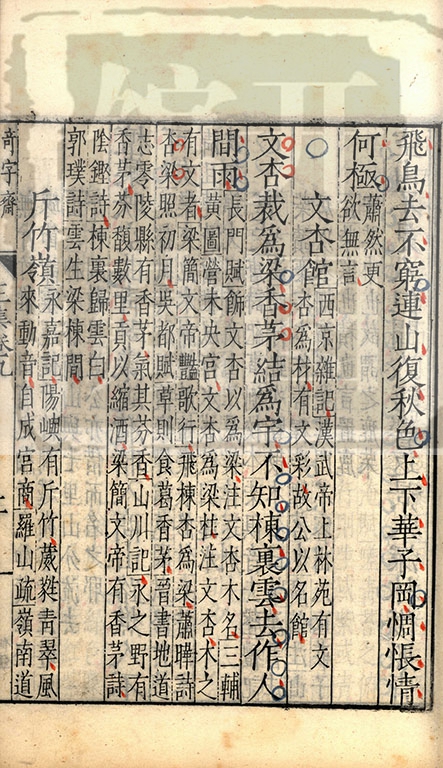 飛鳥去不窮連山復秋色上下華子岡惆悵情
何極蕭然更
欲無言
文杏館西京雜記漢武帝上林苑有文
杏為材有文彩故公以名館
文杏裁為梁香茅結為宇不知棟裏雲去作人
間雨長門賦飾文杏以為梁注文杏木名三輔
黃圖營未央宫文杏為梁柱注文杏木之
有文者梁簡文帝豔歌行飛棟杏為梁蕭曄詩
杏梁照初月吳都賦草則食葛香茅晉書地道
志零陵縣有香茅氣其芬香山川記永之野有
香茅芬馥數里貢以縮酒梁簡文帝有香茅詩
陰鏗詩棟裏歸雲白
郭璞詩雲生梁棟間
斤竹嶺永嘉記陽嶼有斤竹葳蕤青翠風
來動音自成宮商羅山疏嶺南道
奇字齋